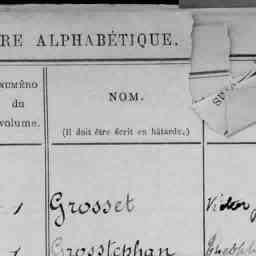 RE ALPHABÉTIQUE.
NUMÉRO
du
volume.
NOM.
(Il doit être écrit en bâtarde.)
1 Grosset Victor
1 Grosstephan